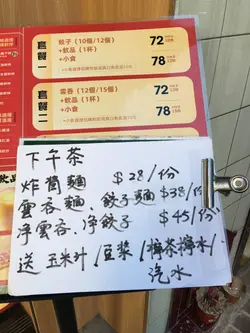 套餐一
餃子（10個/12個）
+飲品（1杯）
+小食
72
78
套餐二
雲吞（12個/15個）
+飲品（1杯）
+小食
72
78
下午茶
炸醬麵 $28/份
雲吞麵、餃子麵 $38/份
淨雲吞、淨餃子 $45/份
送 玉米汁/豆漿/檸茶檸水/
汽水